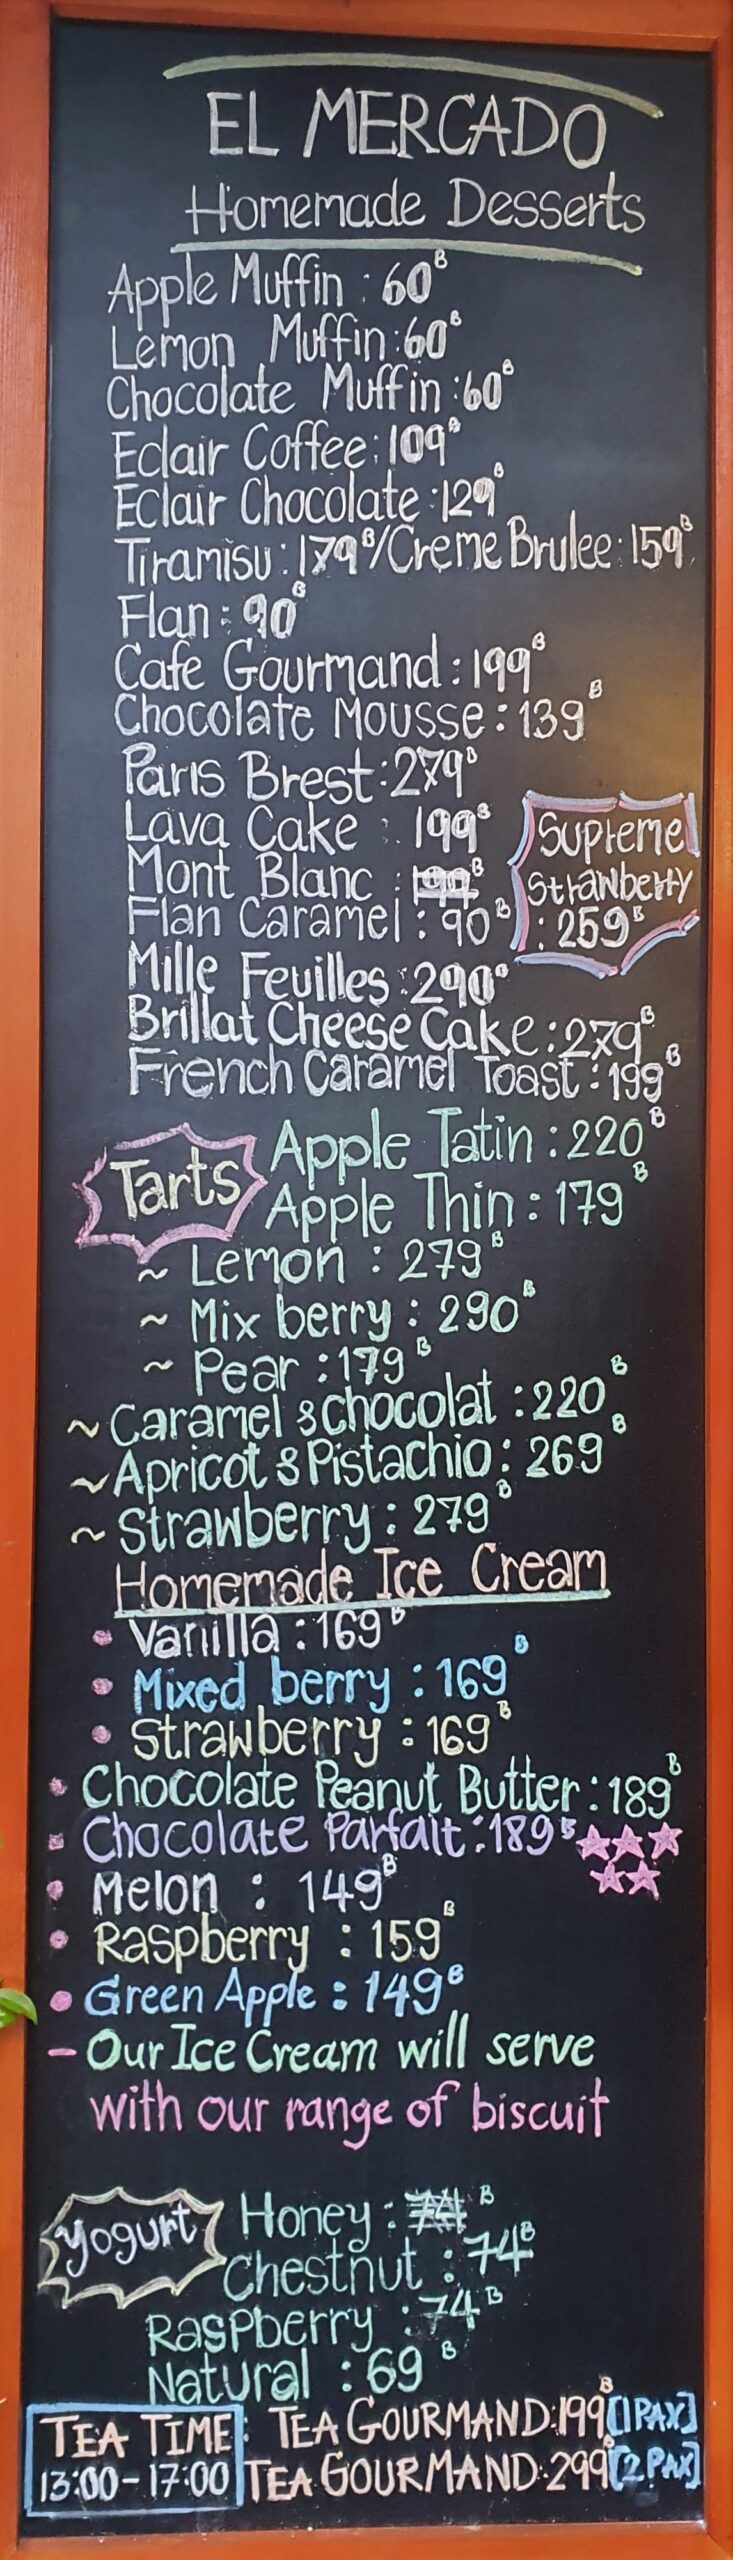 EL MERCADO
Homemade Desserts
Apple Muffin : 60฿
Lemon Muffin : 60฿
Chocolate Muffin : 60฿
Eclair Coffee : 109฿
Eclair Chocolate : 129฿
Tiramisu : 179฿/Creme Brulee : 159฿
Flan : 90฿
Cafe Gourmand : 199฿
Chocolate Mousse : 139฿
Paris Brest : 279฿
Lava Cake : 199฿
Mont Blanc : 199฿
Supreme
Strawberry
: 259฿
Flan Caramel : 90฿
Mille Feuilles : 290฿
Brillat Cheese Cake : 279฿
French Caramel Toast : 199฿
Tarts
Apple Tatin : 220฿
Apple Thin : 179฿
~ Lemon : 279฿
~ Mix berry : 290฿
~ Pear : 179฿
~ Caramel & Chocolat : 220฿
~ Apricot & Pistachio : 269฿
~ Strawberry : 279฿
Homemade Ice Cream
• Vanilla : 169฿
• Mixed berry : 169฿
• Strawberry : 169฿
• Chocolate Peanut Butter : 189฿
• Chocolate Parfait : 189฿ ★★★★★
• Melon : 149฿
• Raspberry : 159฿
• Green Apple : 149฿
- Our Ice Cream will serve
with our range of biscuit
Yogurt
Honey : 74฿
Chestnut : 74฿
Raspberry : 74฿
Natural : 69฿
TEA TIME : TEA GOURMAND : 199฿ [1 PAX]
13:00 - 17:00 TEA GOURMAND : 299฿ [2 PAX]